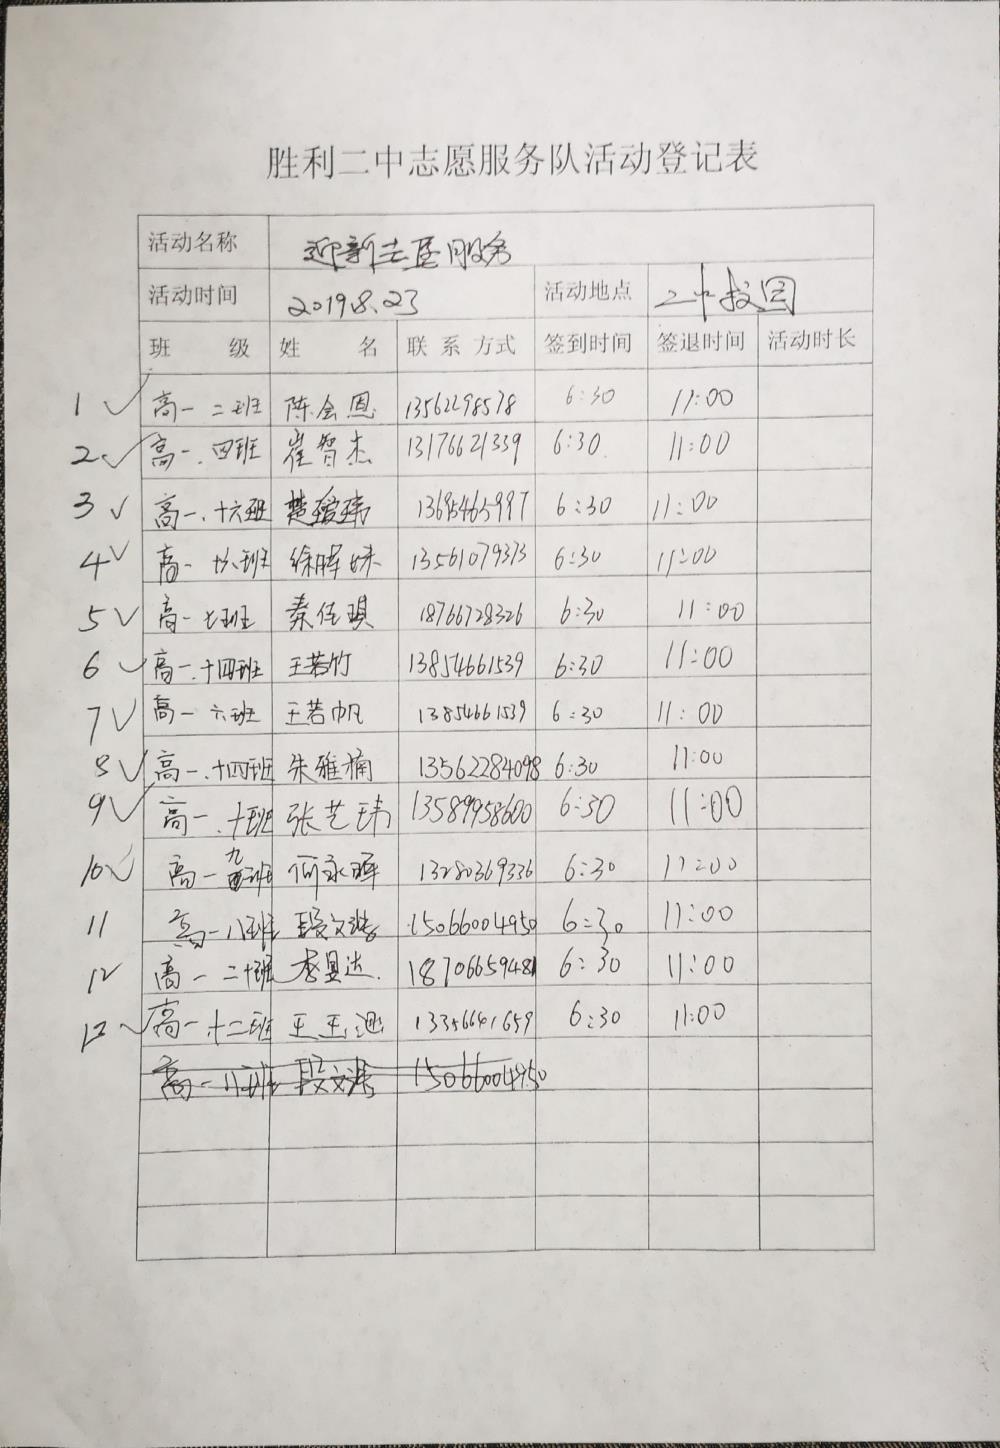 胜利二中志愿服务队活动登记表
活动名称 迎新志愿服务
活动时间 2019.8.23 活动地点 二中校园
班 级 姓 名 联 系 方式 签到时间 签退时间 活动时长
1 ✓ 高一二班 陈会恩 13562298578 6:30 11:00
2 ✓ 高一.四班 崔智杰 13176621339 6:30 11:00
3 ✓ 高一.十六班 楚瑷玮 13695465997 6:30 11:00
4 ✓ 高一 十六班 徐晖妹 13561079373 6:30 11:00
5 ✓ 高一七班 秦佳琪 18766728326 6:30 11:00
6 ✓ 高一.十四班 王若竹 13854661539 6:30 11:00
7 ✓ 高一 六班 王若帆 13854661539 6:30 11:00
8 ✓ 高一.十四班 朱雅楠 13562284098 6:30 11:00
9 ✓ 高一.十班 张艺玮 13589958600 6:30 11:00
10 ✓ 高一九班 何永晖 13280369336 6:30 11:00
11 高一八班 段文 15066004950 6:30 11:00
12 高一二十班 李昱达 18706659481 6:30 11:00
12 ✓ 高一十二班 王玉迪 13356641659 6:30 11:00
高一八班 段文 15066004950